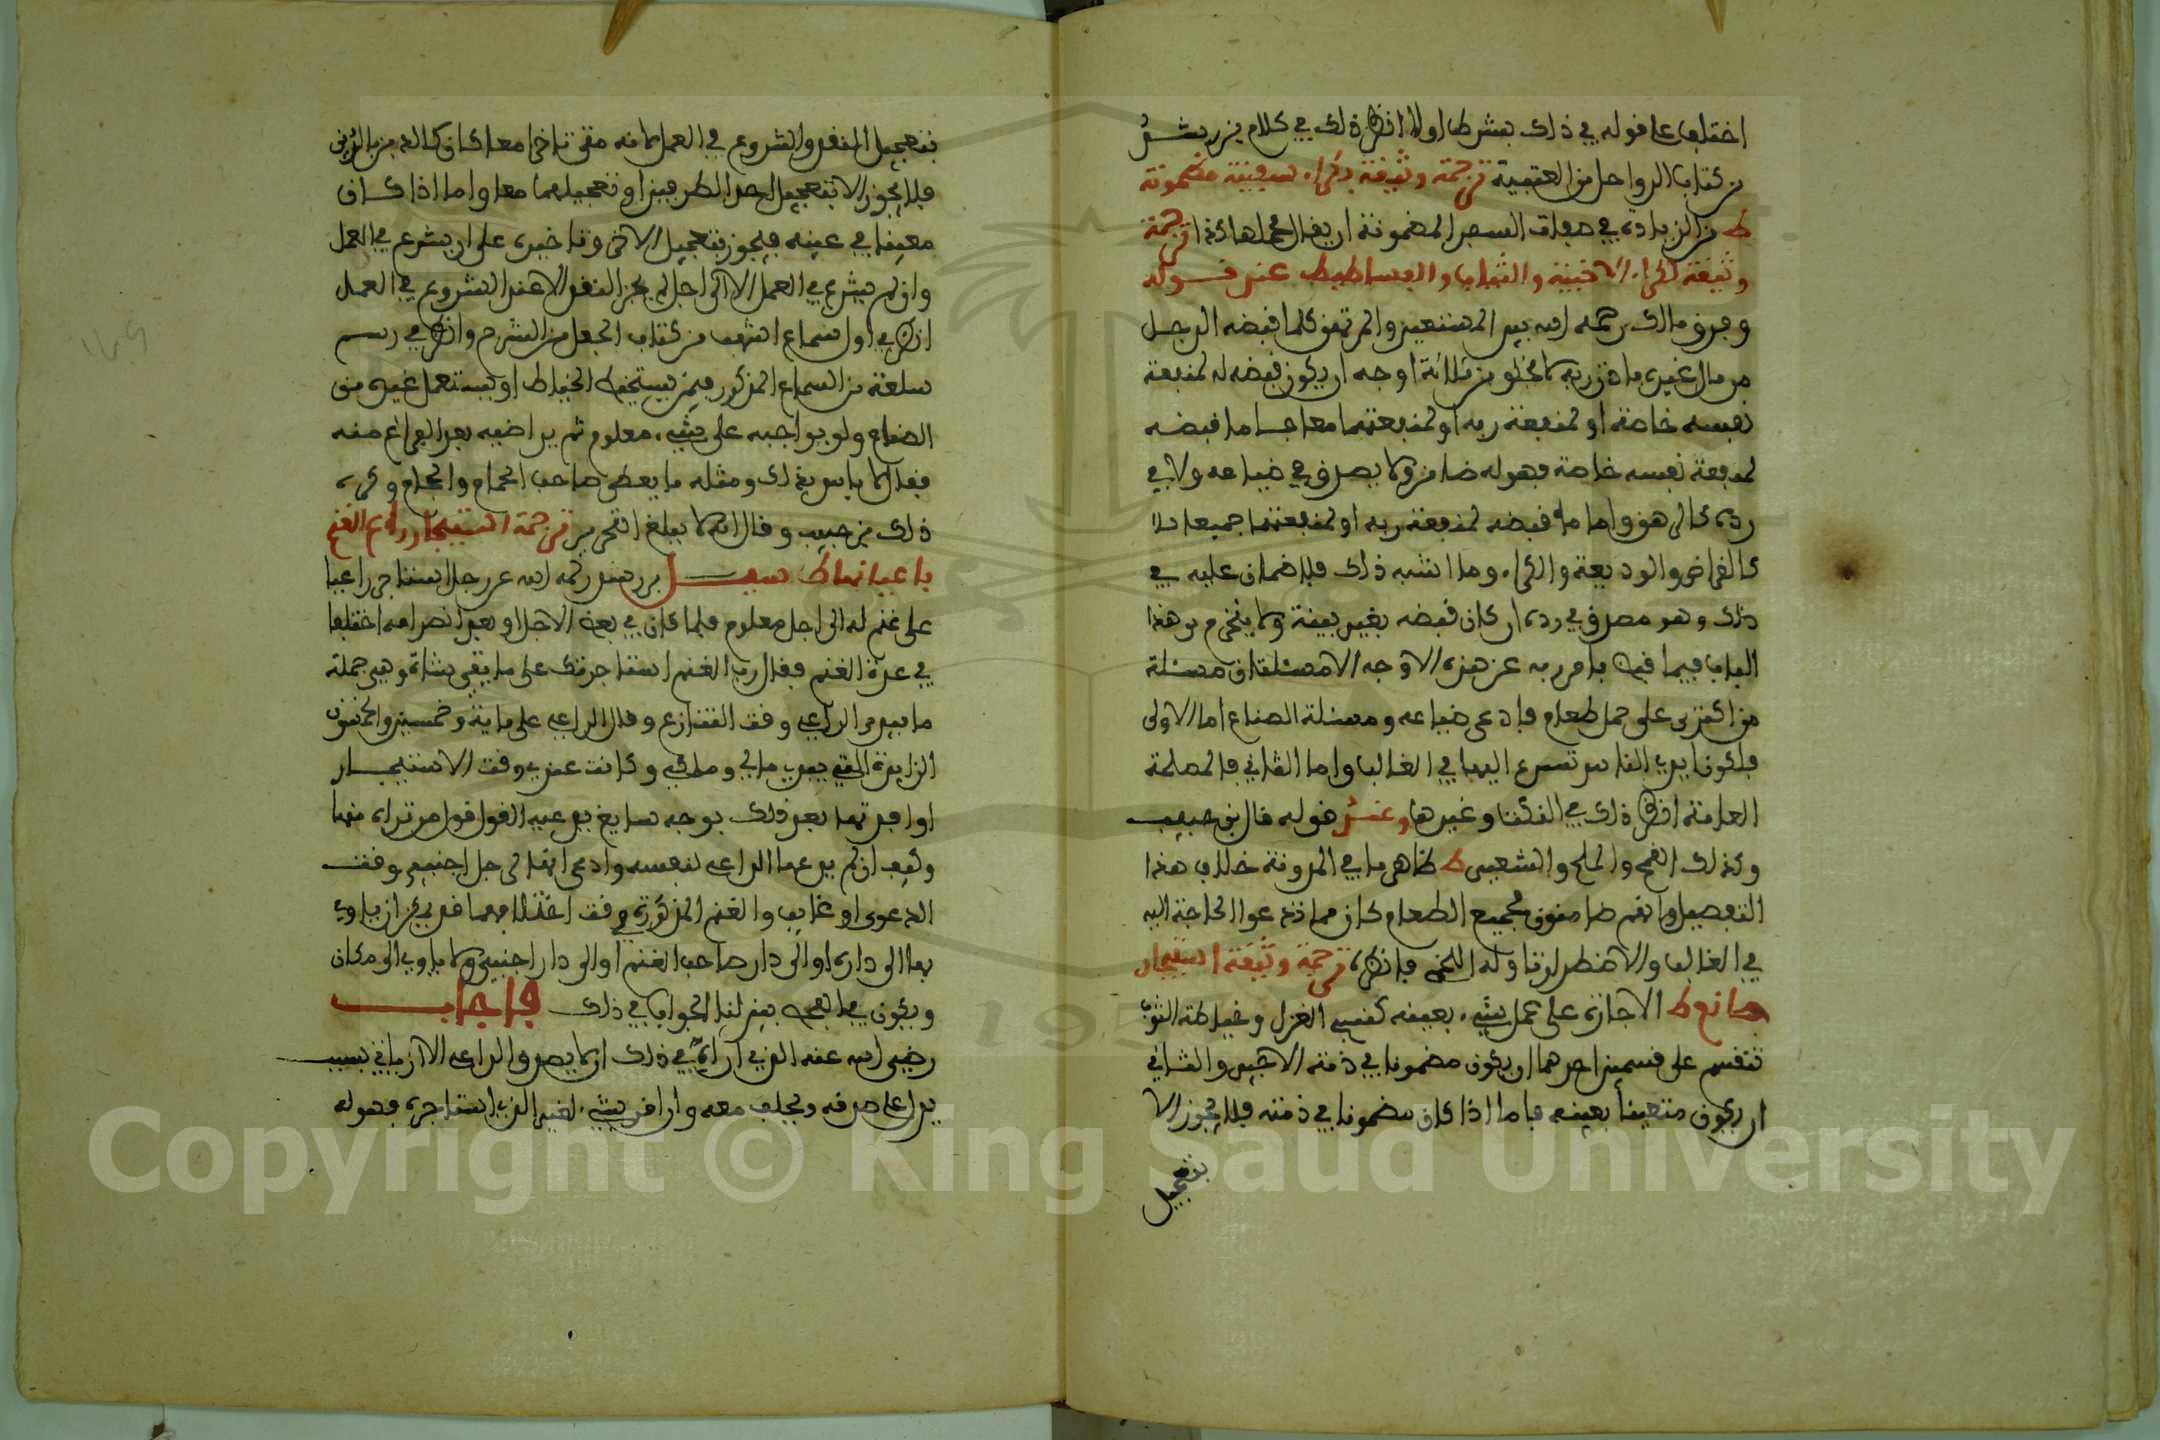 اختلف على قوله في ذلك بشرط او لا انظر ذلك في كلام بن رشد
من كتاب الرواحل من العتبية ترجمة وثيقة بكراء سفينة مضمونة
ط من الزيادة في صفات السفن المضمونة ان يقال محملها كذا ترجمة
وثيقة كراء الاخبية والثياب والفساطيط عند قوله
وفرق مالك رحمه الله بين المستعير والمرتهن كلما قبضه الرجل
من مال غيره باذن ربه لا يخلو من ثلاثة اوجه ان يكون قبضه له لمنفعة
نفسه خاصة او لمنفعة ربه او لمنفعتهما معا فاما ما قبضه
لمنفعة نفسه خاصة فهو له ضامن ولا يصدق في ضياعه ولا في
رده كالرهن واما ما قبضه لمنفعة ربه او لمنفعتهما جميعا
كالقراض والوديعة والكراء وما اشبه ذلك فلا ضمان عليه في
ذلك وهو مصدق في رده ان كان قبضه بغير بينة ولا ينخرم من هذا
الباب فيما قبض باذن ربه عن هذه الاوجه الا مسئلتان مسئلة
من اكترى على حمل طعام فادعى ضياعه ومسئلة الصناع اما الاولى
فلكون ايدي الناس تسرع اليها في الغالب واما الثاني فالمصلحة
العامة انظر ذلك في النكت وغيرها وعند قوله قال بن حبيب
وكذلك القمح والملح والشعير ط ظاهر ما في المدونة خلاف هذا
التفصيل وانهم ضامنون لجميع الطعام كان مما تدعوا الحاجة اليه
في الغالب والاضطرار تاوله اللخمي فانظره ترجمة وثيقة استيجار
صانع ط الاجارة على عمل شيء بعينه كنسج الغزل وخياطة الثوب
تنقسم على قسمين احدهما ان يكون مضمونا في ذمة الاجير والثاني
ان يكون متعينا بعينه فاما اذا كان مضمونا في ذمته فلا يجوز الا
بتعجيل
بتعجيل النقد والشروع في العمل لانه متى تاخرا معا كان كالدين بالدين
فلا يجوز الا بتعجيل احد الطرفين او تعجيلهما معا واما اذا كان
معينا في عينه فيجوز بتعجيل الاجر وتاخيره على ان يشرع في العمل
وان لم يشرع في العمل الا الى اجل لم يجز النقد الا عند الشروع في العمل
انظر في اول سماع اشهب من كتاب الجعل من الشرح وانظر في رسم
سلعة من السماع المذكور فيمن يستخيط الخياط او يستعمل غيره من
الصناع ولو يواجبه على شيء معلوم ثم يراضيه بعد الفراغ منه
فقال لا باس بذلك ومثله ما يعطى صاحب الحمام والحجام وكره
ذلك بن حبيب وقال انه لا يبلغ التحريم ترجمة استيجار راع الغنم
باعيانها ط سيل بن رشد رحمه الله عن رجل استاجر راعيا
على غنم له الى اجل معلوم فلما كان في بعض الاجل او بعد انصرامه اختلفا
في عدة الغنم فقال رب الغنم استاجرتك على مايتي شاة وهي جملة
ما بيد الراعي وقت التنازع وقال الراعي على ماية وخمسين والخمسون
الزايدة التي بيدي مالي وملكي وكانت عندي وقت الاستيجار
او افدتها بعد ذلك بوجه سايغ يدعيه القول قول من تراه منهما
وكيف ان لم يدعها الراعي لنفسه وادعى انها لرجل اجنبي وقت
الدعوى او غايب والغنم المذكورة وقت اختلافهما لم يكن ياوي
بها الى داره او الى دار صاحب الغنم او الى دار اجنبي ولا ياوي الى مكان
ويكون في الفحص بين لنا الجواب في ذلك فاجاب
رضي الله عنه الذي اراه في ذلك ان لا يصدق الراعي الا ان ياتي بسبب
يدل على صدقه ويحلف معه وان اقر بشيء لغير الذي استاجره فهو له